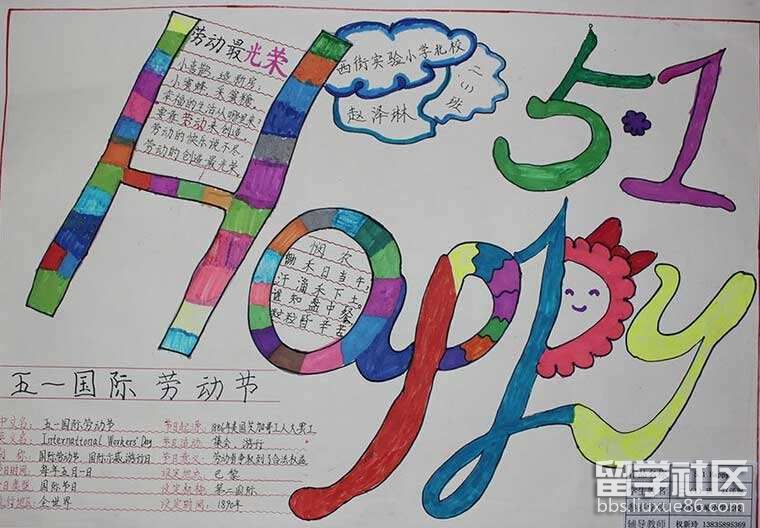 劳动最光荣
小喜鹊,造新房,
小蜜蜂 采蜜糖,
幸福的生活从哪里来?
要靠劳动来创造。
劳动的快乐说不尽,
劳动的创造最光荣。
西街实验小学北校
二(1)班
赵泽淋
5·1
Happy
悯农
锄禾日当午,
汗滴禾下土。
谁知盘中餐
粒粒皆辛苦
五一国际劳动节
中文名: 五一国际劳动节 节日起源: 1886年美国芝加哥工人大罢工
英文名: International Workers' Day 节日活动: 集会、游行
别 称: 国际劳动节、国际示威游行日 节日意义: 劳动者争取到了合法权益
节日时间: 每年五月一日 设定地点: 巴黎
节日类型: 国际节日 设定 第二国际
流行地区: 全世界 设定时间: 1890年
辅导教师 权新玲 13835895369
留学社区
bbs.liuxue86.com